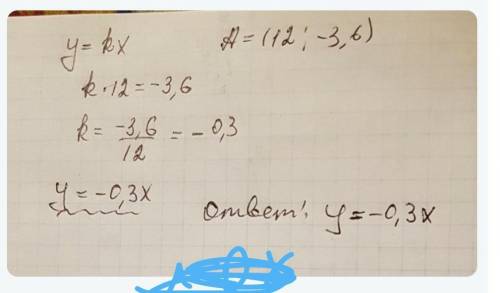 y = kx   A = (12 ; -3,6)
k · 12 = -3,6
k = -3,6/12 = - 0,3
y = -0,3x
Ответ: y = -0,3x